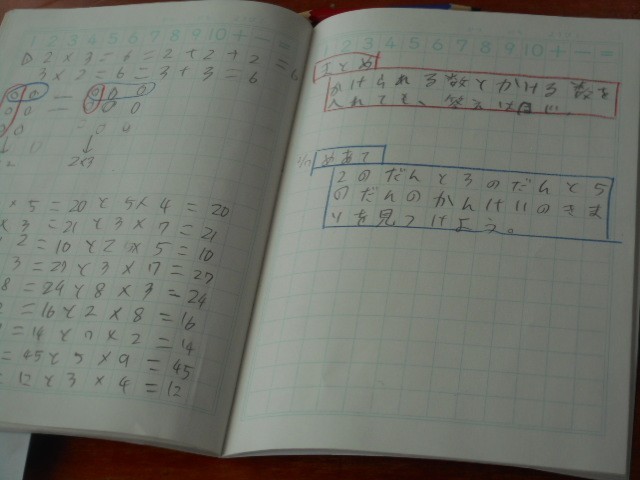 1 2 3 4 5 6 7 8 9 10 + - =
2 × 3 = 6 = 2 + 2 + 2 = 6
3 × 2 = 6 = 3 + 3 = 6
2×3
× 5 = 20 と 5 × 4 = 20
× 3 = 21 と 3 × 7 = 21
2 = 10 と 2 × 5 = 10
8 = 24 と 8 × 3 = 24
= 16 と 2 × 8 = 16
= 14 と 7 × 2 = 14
= 45 と 5 × 9 = 45
= 12 と 3 × 4 = 12
1 2 3 4 5 6 7 8 9 10 + - =
まとめ
かけられる数とかける数を
入れても、答えは同じ。
めあて
2のだんと3のだんと5
のだんのかんけいのきま
りを見つけよう。